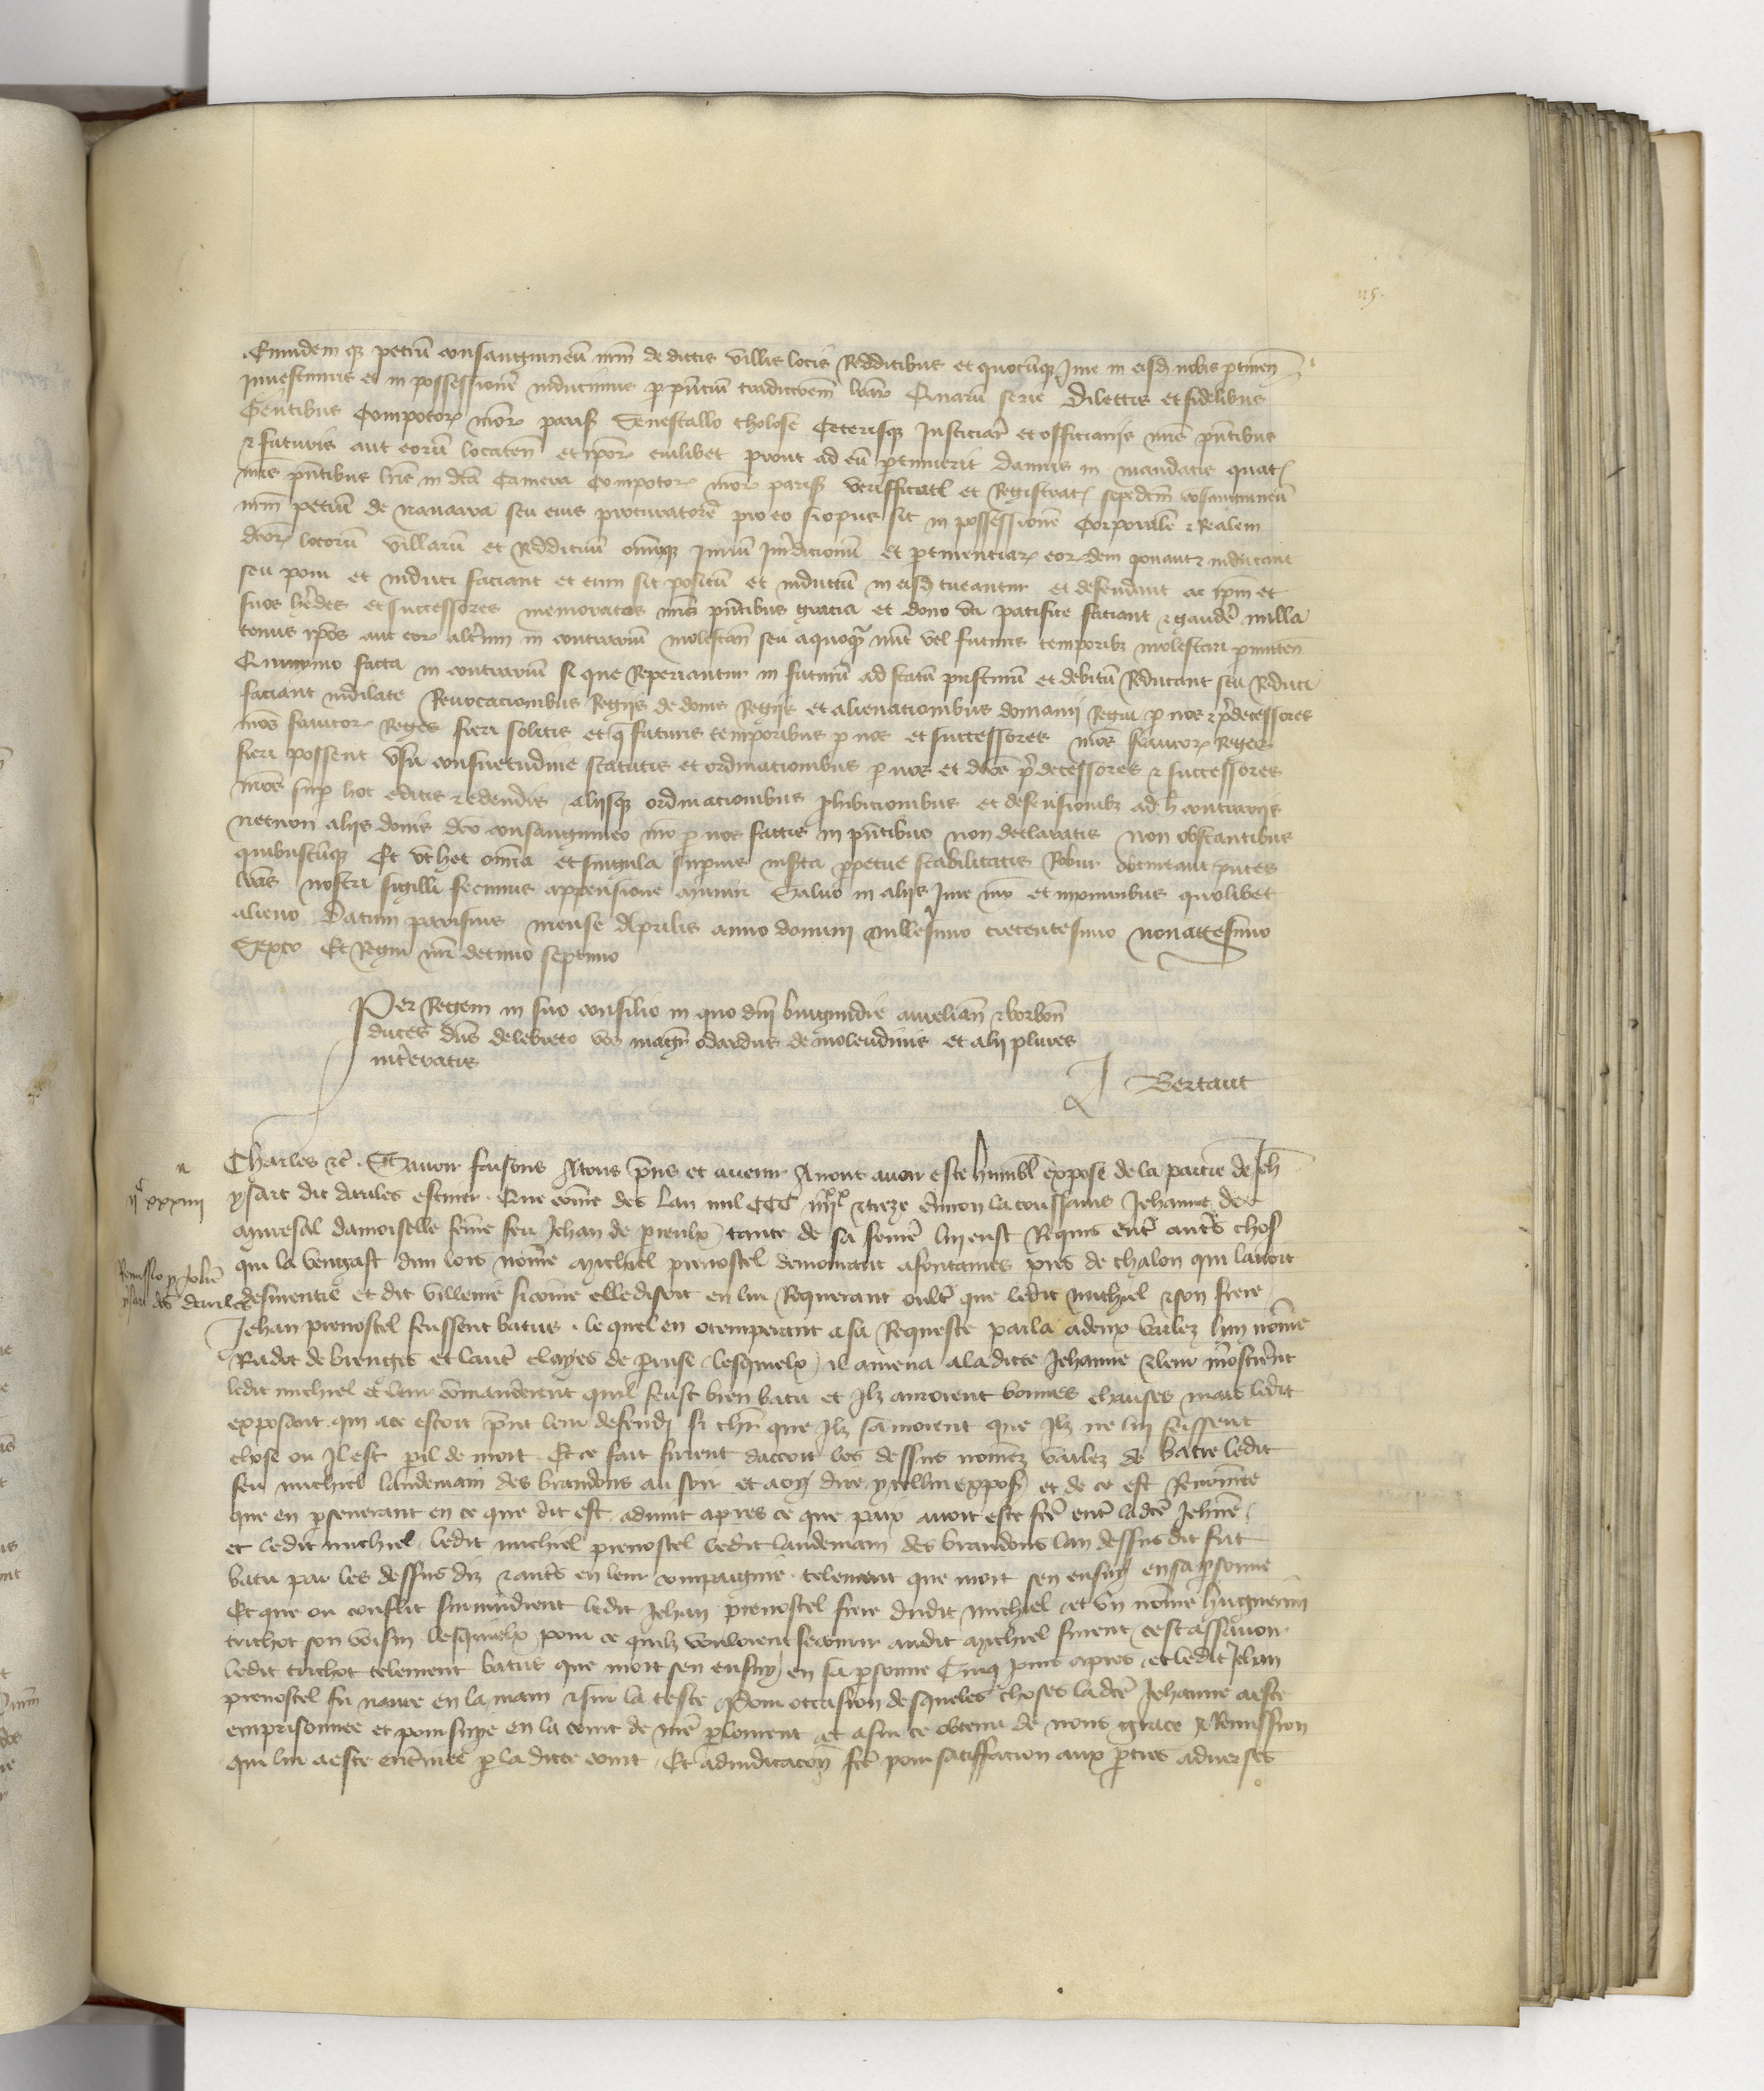 115.
Eumdem qz petrũ consanguineũ nrm̃ de dictis villis locis Redditibus et quocũqz Jure in eisd nobis ptineñ
Jnvestimus et in possessionẽ inducimus p pñtiũ tradictõem lrãr Quarũ serie Dilectis et fidelibus
Gentibus Compotor nror paris Senescallo tholose Ceterisqz Justiciar et officiarijs nris pñtibus
& futuris aut eorũ locateñ et ipor cuilibet prout ad eũ ptinuerit Damus in mandatis quat
nris pñtibus lris in dcã Camera Compotor nror paris veriffficat et Registrat sepedcm̃ cõsanguineũ
nrm̃ petrũ de navarra seu eius procuratorẽ pro eo si opus sit in possessionẽ Corporalẽ & Realem
dcor locorũ villarũ et Reddituũ omĩqz Juriũ Jurĩdicionũ et ptinenciar eor dem ponant & inducant
seu poni et induci faciant et eum sic positũ et inductũ in eisd tueantur et defendant ac ipm̃ et
suos hẽdes et successores memoratos nris pñtibus gracia et dono uti pacifice faciant & gaudẽ nulla
tenus ipõs aut eor altẽum in contrariũ molestañ seu a quoqz nũc vel futuris temporibz molestari pmitteñ
Quinymo facta in contrariũ si que Reperiantur in futurũ ad statũ pristinũ et debitũ Reducant seu Reduci
faciant indilate Revocacionibus Regijs de donis Regijs et alienacionibus domanij Regni p nos & p̃decessores
nros francor Reges fieri solitis et q futuris temporibus p nos et successores nros francor Reges
fieri possent Usu consuetudine statutis et ordinacionibus p nos et dcõs p̃decessores & successores
nros sup hoc editis & edendis alijsqz ordinacionibus phibicionibus et defensionibz ad h̃ contrarijs
necnon alijs donis dcõ consanguineo nro p nos factis in pñtibus non declaratis non obstantibus
quibuscũqz Et ut hec omĩa et singula supius inscta ppetue stabilitatis Robur obtineant pñtes
lrãs nostri sigilli fecimus appensione muniri Salvo in alijs Jure nro et in omnibus quolibet
alieno Datum parisius mense Aprilis anno domini Millesimo trecentesimo nonagesimo
Sexto Et Regni nri decimo septimo
Per Regem in suo consilio in quo dnĩ burgundie aureliañ & borboñ
duces dñs delebreto vos magr̃ odardus de molendinis et alij plures
int̃eratis
J Bertaut
Charles &c̃. Savoir faisons Atous p̃ns et avenir Avons avoir este humbl̃ expose de la partie de Jeh̃
ysart dit daniles escuier. Que cõme des Lan mil CCC iiijxx & treze ẽviron la toussains Jehanne de
Muresal damoiselle fẽme feu Jehan de prenlx tante de sa femẽ luy eust Requis ent̃ aut̃s chos̃
qui la vengast dun lors nõme Michiel prenostel demourant afontaines pres de chalon qui lavoit
desmentie et dit villenie sicõme elle disoit en lui Requerant oult̃ que ledit michiel & son frere
Jehan prenostel feussent batus. lequel en otemperant a sa Requeste parla adeux varlez lun nõme
Rudot de brenges et laut̃ clayes de pruse lesquielx il amena ala dicte Jehanne & leur mõstrẽnt
ledit michiel et leur cõmanderent quil feust bien batu et Ilz auroient bonnes chauses mais ledit
exposant qui ace estoit p̃nt leur defendi si ch̃r que Ilz lamoient que Ilz ne lui feissent
chose ou Il est pil de mort. Et ce fait furent dacort les dessus nõmez varlez de batre ledit
feu michiel landemain des brandons au soir et aoy dire ycellui expos̃ et de ce est Renõmee
que en pseverant en ce que dit est advint apres ce que paix avoit este fc̃e ent̃ ladc̃e Jehñe
et ledit michiel ledit michiel prenostel ledit landemain des brandons lan dessusdit fut
batu par les dessus diz & aut̃s en leur compaignie telement que mort sen ensuy en sa psonne
Et que ou conflit survindrent ledit Jehan prenostel frere dudit michiel et un nõme huguenin
trichot son voisin lesquielx pour ce quilz vouloient secourir audit Michiel furent cest assavoir
ledit trichot telement batus que mort sen ensuy en sa psonne Cinq jours apres et ledit Jehan
prenostel fu navre en la main & sur la teste Pour occasion desqueles choses ladc̃e Jehanne aeste
emprisonnee et poursuye en la court de nr̃e plement et a sur ce obtenu de nous grace & Remission
qui lui a este ent̃inee p la dicte court. Et adiudicacõn fc̃e pour satiffacion aux pties adverses
n
ijc xxxiiij
Remissio p Johe
ysart dco daniles